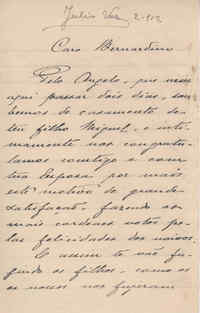 Julio Vaz 2-912
Caro Bernardino
Pelo Angelo, que veio
aqui passar dois dias, sou-
bemos do casamento de
teu filho Miguel, e inti-
mamente nos congratu-
lamos comtigo e com
tua Esposa por mais
este motivo de grande
satisfação, fazendo os
mais cordeaes votos pe-
las felicidades dos noivos.
E assim te vão fu-
gindo os filhos, como os
os nossos nos fugiram